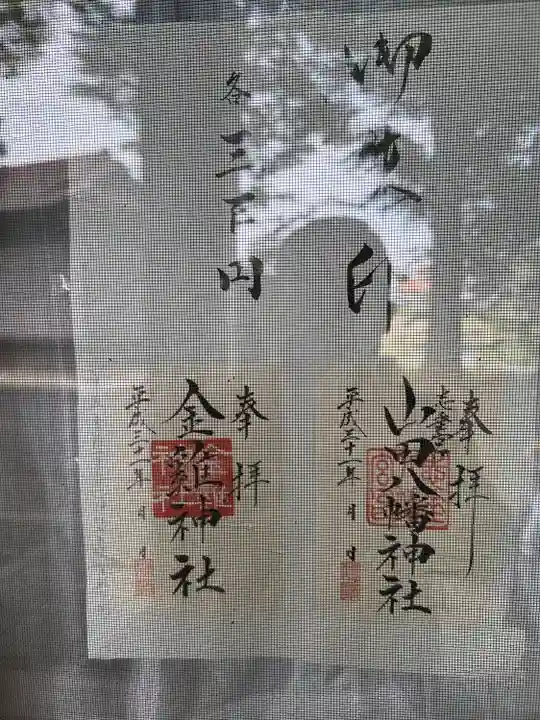 御朱印
各三百円
奉拝
山田八幡神社
平成三十一年 月 日
奉拝
金雞神社
平成三十一年 月 日